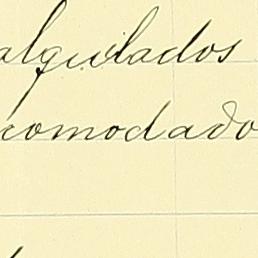 alquilados
comodado